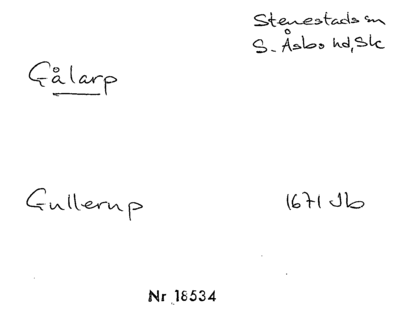 Stenestads sn
S. Åsbo hd, Sk
Gålarp
Gullerup 1671 Jb
Nr 18534